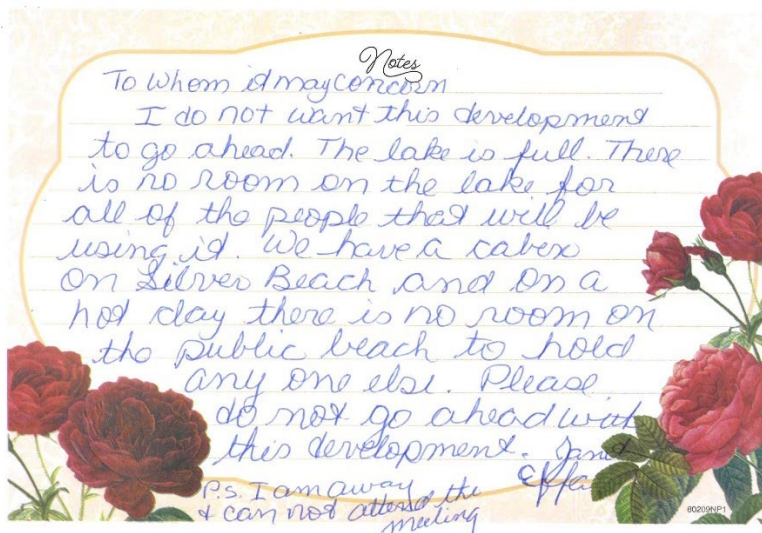 Notes
To Whom it may concern
I do not want this development
to go ahead. The lake is full. There
is no room on the lake for
all of the people that will be
using it. We have a cabin
on Silver Beach and on a
hot day there is no room on
the public beach to hold
any one else. Please
do not go ahead with
this development.
P.S. I am away
+ can not attend the
meeting
80209NP1